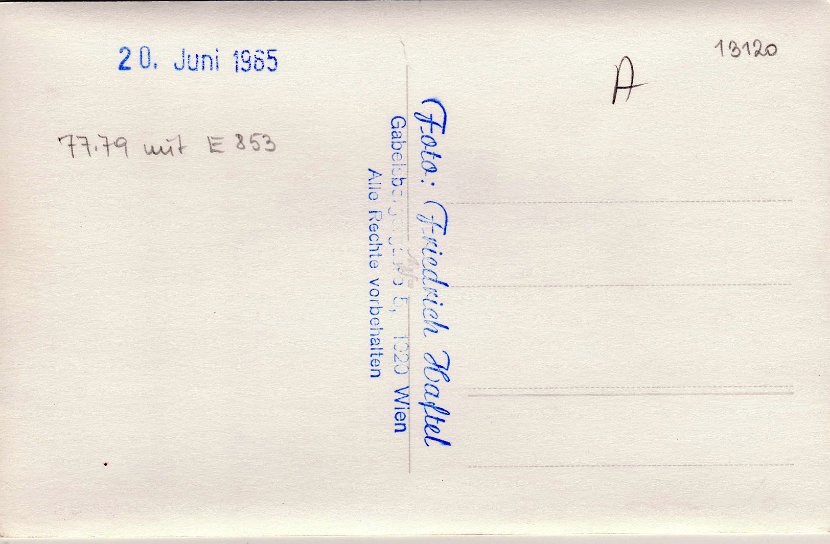 20. Juni 1965
77.79 mit E 853
Foto: Friedrich Haftel
5, 1020 Wien
Alle Rechte vorbehalten
A
13120